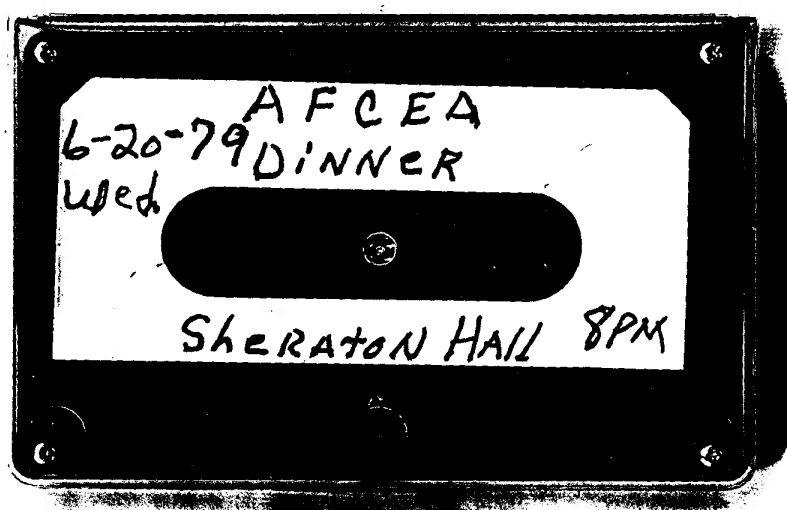 AFCEA
6-20-79 DINNER
Wed.
SheRAtoN HAll 8PM